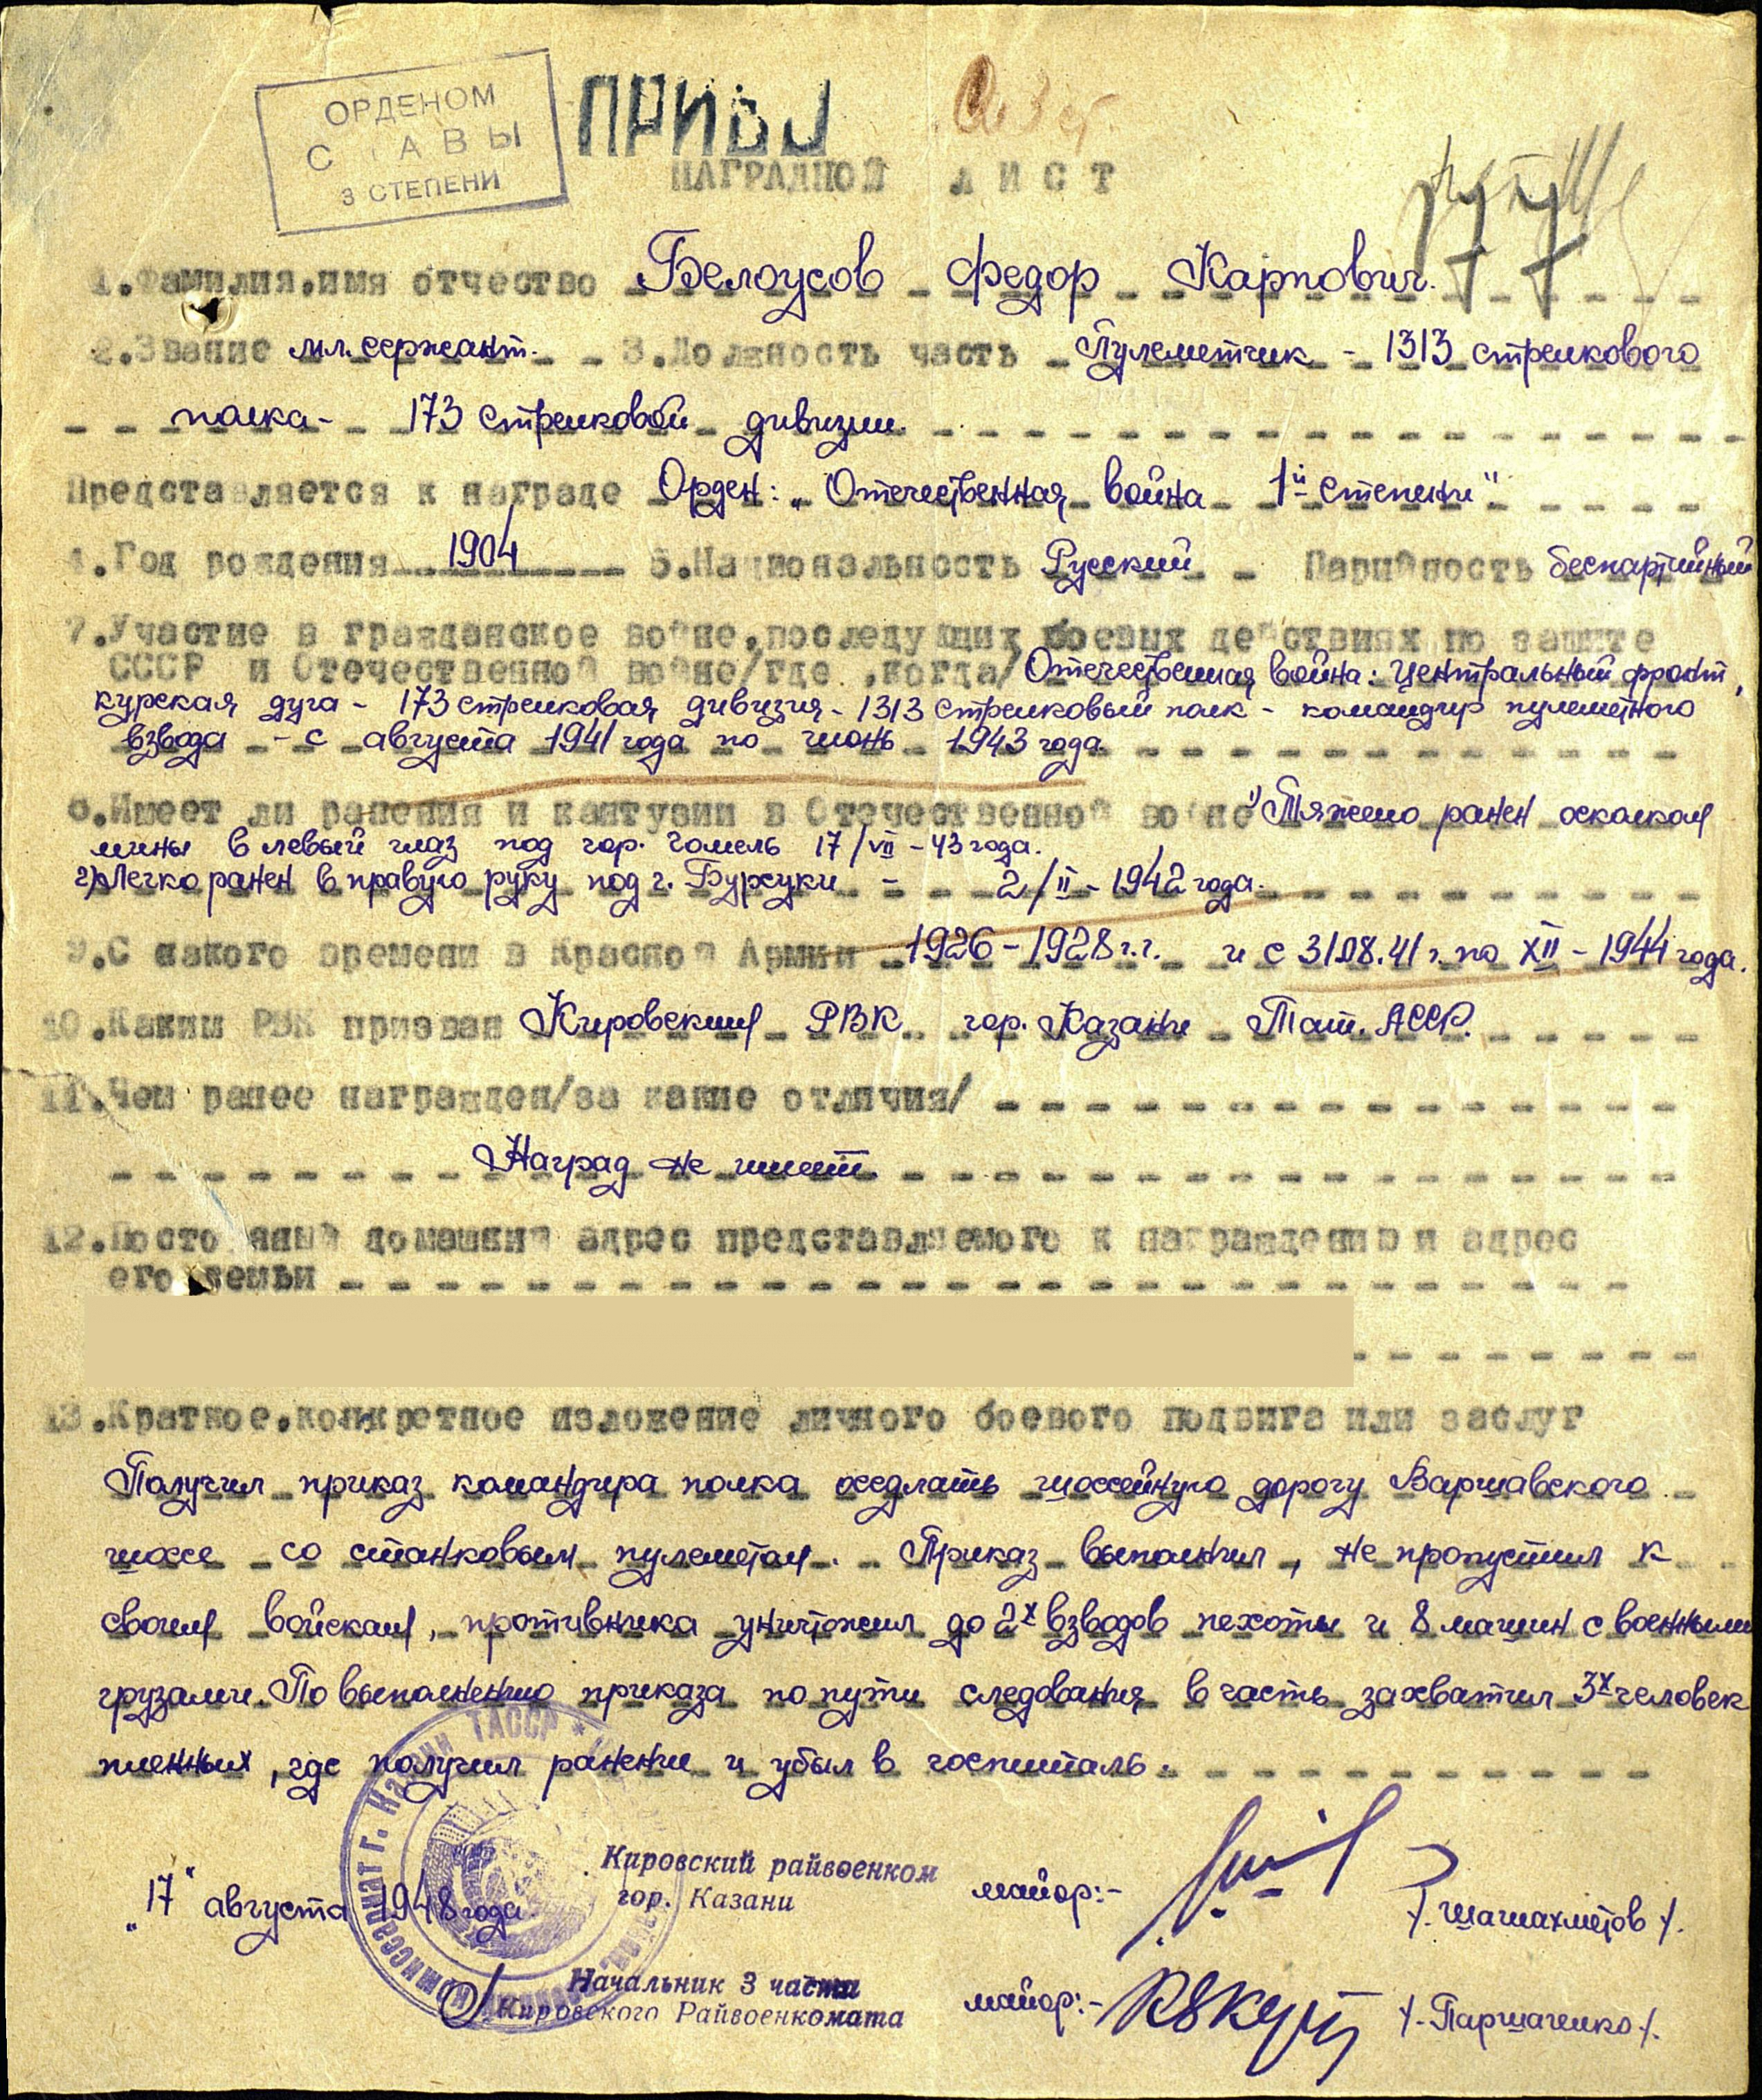 ОРДЕНОМ
СЛАВЫ
3 СТЕПЕНИ
НАГРАДНОЙ ЛИСТ
77
1.Фамилия,имя отчество Белоусов Федор Карпович.
2.Звание мл. сержант. 3.Должность часть Пулеметчик - 1313 стрелкового
полка - 173 стрелковой дивизии.
Представляется к награде Орден: „Отечественная война 1й степени"
4.Год рождения 1904 5.Национальность Русский Парийность беспартийный
7.Участие в гражданское войне,последующих боевых действиях по защите
СССР и Отечественной войне/где ,когда/ Отечественная война: Центральный фронт,
курская дуга - 173 стрелковая дивизия - 1313 стрелковый полк - командир пулеметного
взвода - с августа 1941 года по июнь 1943 года.
8.Имеет ли ранения и кантузии в Отечественной войне 1) Тяжело ранен осколком
мины в левый глаз под гор. Гомель 17/VII - 43 года.
2) Легко ранен в правую руку под г. 2/II - 1942 года.
9.С какого времени в Красной Армии 1926 - 1928 г.г. и с 31.08.41 г. по XII - 1944 года.
10.Каким РВК призван Кировским РВК гор. Казани Тат. АССР.
11.Чем ранее награжден/за какие отличия/
Наград не имеет.
12.Постоянный домашний адрес представляемого к награждению и адрес
его семьи
13.Краткое,конкретное изложение личного боевого подвига или заслуг
Получил приказ командира полка оседлать шоссейную дорогу Варшавского
шоссе со станковым пулеметом. Приказ выполнил, не пропустил к
своим войскам, противника уничтожил до 2х взводов пехоты и 8 машин с военными
грузами. По выполнению приказа по пути следования в часть захватил 3х человек
пленных, где получил ранени и убыл в госпиталь.
Кировский райвоенком
гор. Казани
майор:- /. Шагиахметов /.
„17" августа 1948 года.
Начальник 3 части
Кировского Райвоенкомата
майор:- /. Паршаченко /.